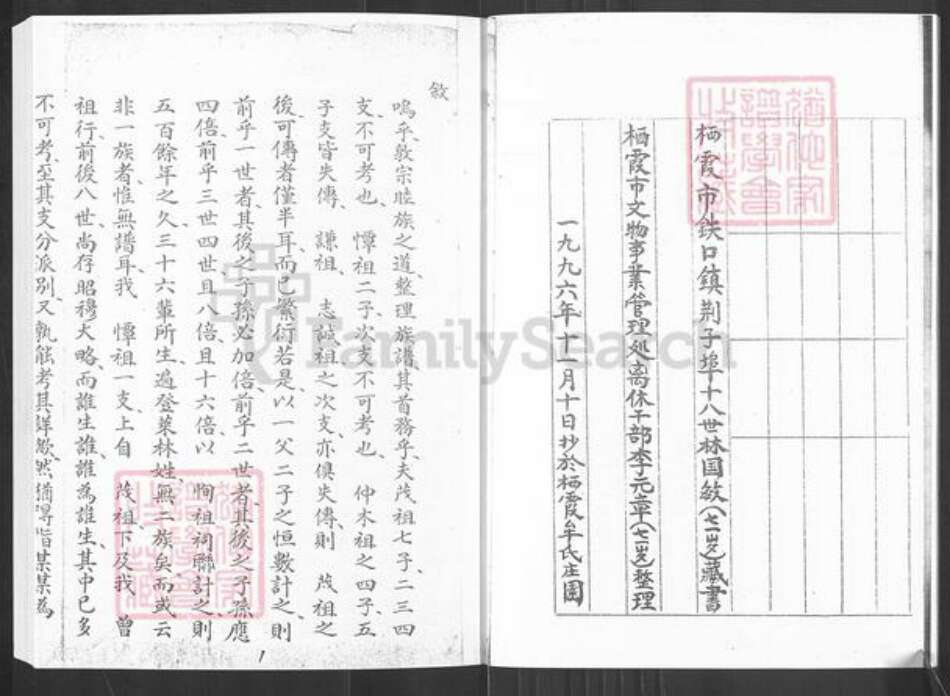 栖霞市鉄口鎮荆子埠十八世林国敏(七一岁)藏書
栖霞市文物事業管理処离休干部李元章(七一岁)整理
一九九六年十一月十日抄於栖霞牟氏庄園
敘
嗚乎敦宗睦族之道整理族譜其首務乎夫茂祖七子二三四
支不可考也 憛祖二子次支不可考也 仲木祖之四子五
子支皆失傳 謙祖 志誠祖之次支亦俱失傳則 茂祖之
後可傳者僅半耳而已繁衍若是以一父二子之恒數計之則
前乎一世者其後之子孫必加倍前乎二世者其後之子孫應
四倍前乎三世四世且八倍且十六倍以 恂祖祠聯計之則
五百餘年之久三十六輩所生遍登萊林姓無二族矣而或云
非一族者惟無譜耳我 憛祖一支上自 茂祖下及我 曾
祖行前後八世尚存昭穆大略而誰生誰誰為誰生其中已多
不可考至其支分派別又孰能考其詳歟然猶得指某某為
1
FamilySearch